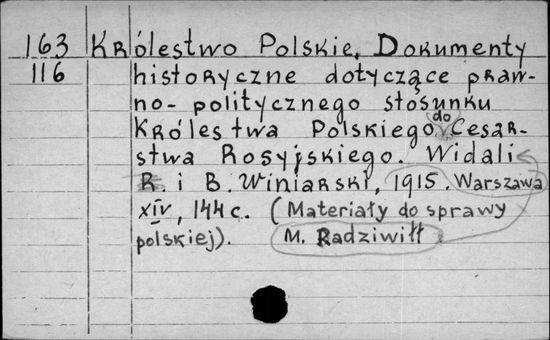 163 Królestwo Polskie. Dokumenty
116 historyczne dotyczące praw-
no-politycznego stosunku
Królestwa Polskiego do Cesar-
stwa Rosyjskiego. Widali
R i B. Winiarski, 1915. Warszawa
XIV, 144 c. (Materiały do sprawy
polskiej). M. Radziwiłł